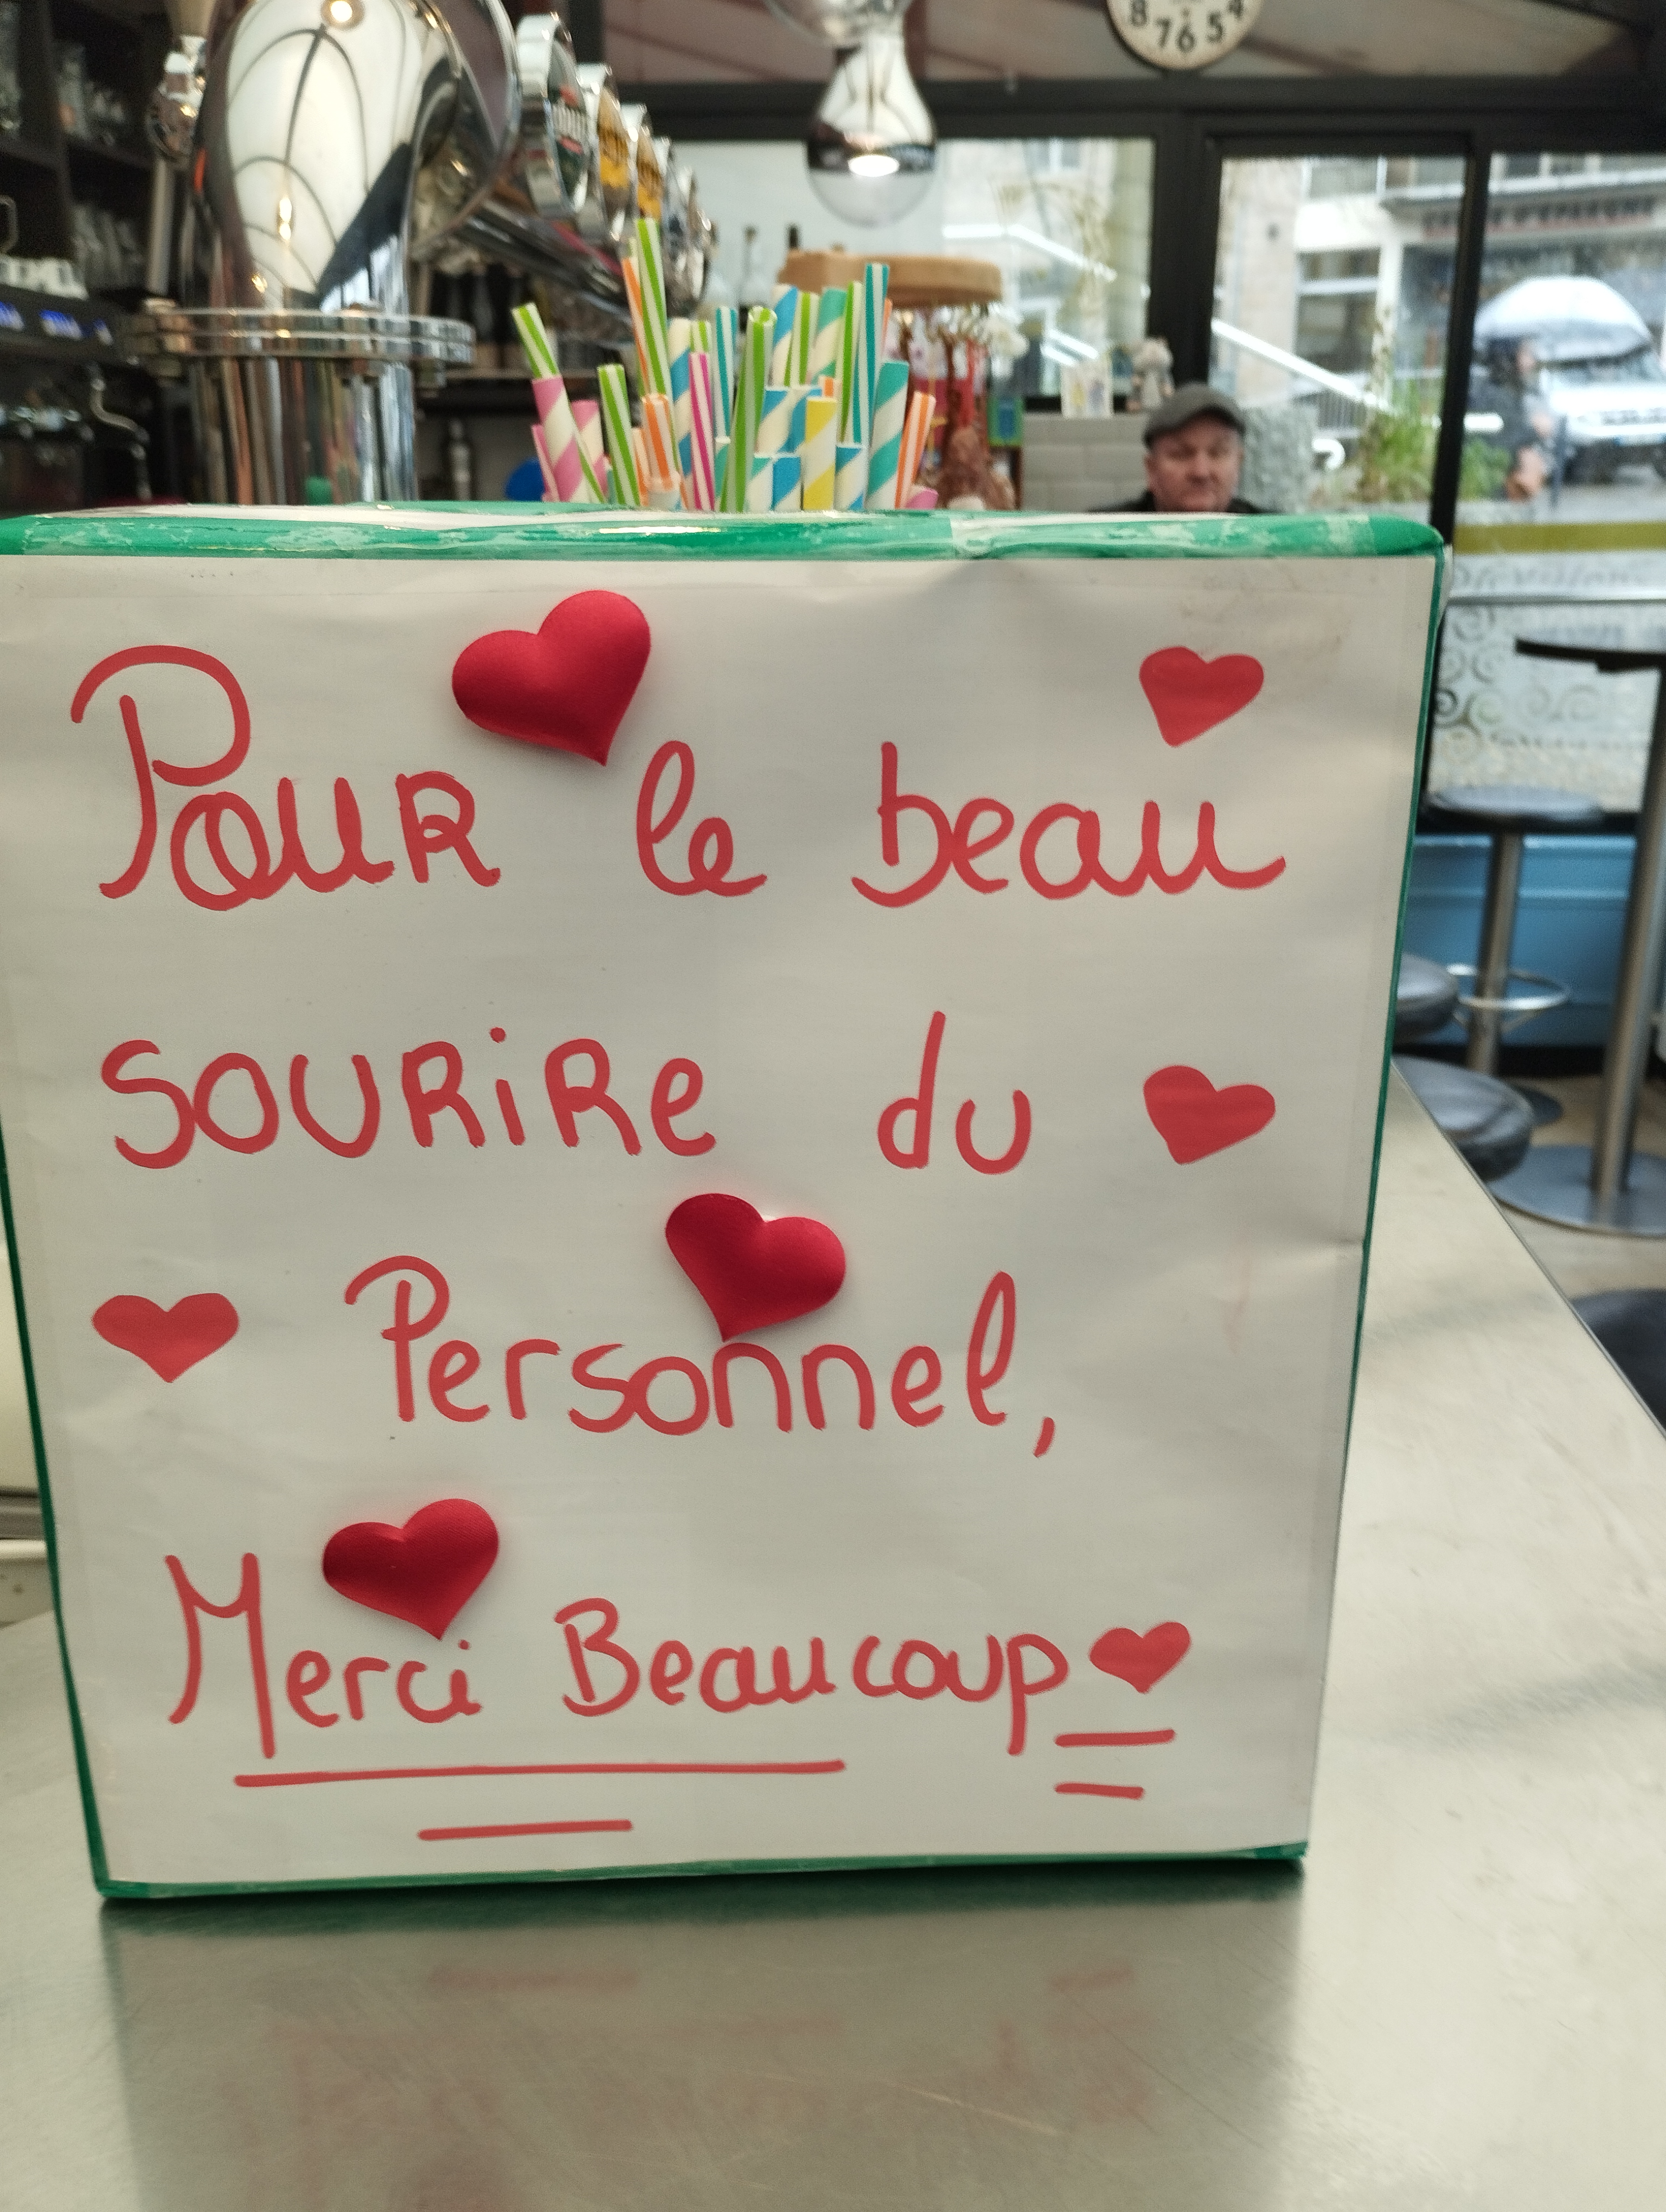 8 7 6 5 4
Pour le beau
sourire du
Personnel,
Merci Beaucoup